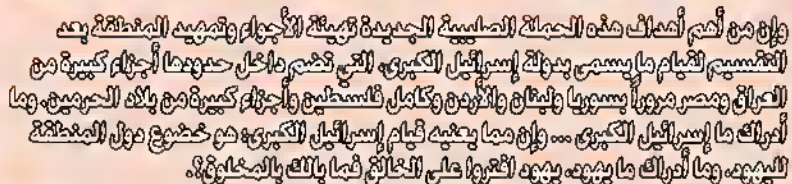 وإن من أهم أهداف هذه الحملة الصليبية الجديدة تهيئة الأجواء وتمهيد المنطقة بعد
التقسيم لقيام ما يسمى بدولة إسرائيل الكبرى، التي تضم داخل حدودها أجزاء كبيرة من
العراق ومصر مروراً بسوريا ولبنان والأردن وكامل فلسطين وأجزاء كبيرة من بلاد الحرمين، وما
أدراك ما إسرائيل الكبرى ... وإن مما يعنيه قيام إسرائيل الكبرى: هو خضوع دول المنطقة
لليهود، وما أدراك ما يهود، يهود افتروا على الخالق فما بالك بالمخلوق؟.